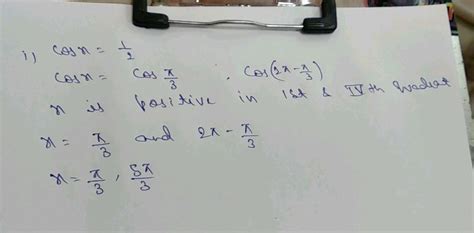 i) cos x = 1/2
cos x = cos π/3 , cos(2π - π/3)
x is positive in 1st & IVth Quadrat
x = π/3 and 2π - π/3
x = π/3 , 5π/3